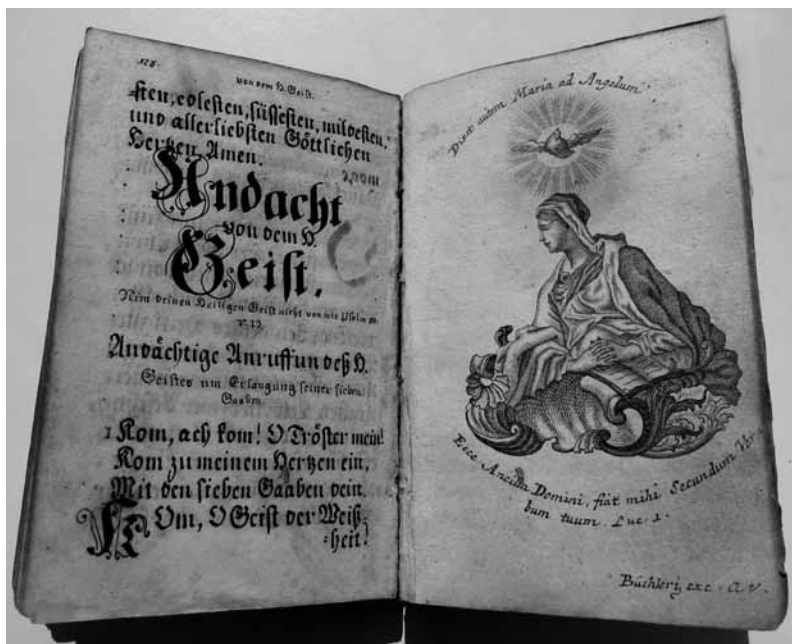 128.
von dem H. Geist.
sten, edlesten, süssesten, mildesten,
und allerliebsten Göttlichen
Hertzen Amen.
Andacht
von dem H.
Geist.
Nim deinen Heiligen Geist nicht von mir Psalm 50.
v. 13.
Andächtige Anruffun deß H.
Geistes um Erlangung seiner sieben
Gaaben.
1 Kom, ach kom! O Tröster mein!
Kom zu meinem Hertzen ein,
Mit den sieben Gaaben dein.
KOm, O Geist der Weiß-
=heit!
Dixit autem Maria ad Angelum
Ecce Ancilla Domini, fiat mihi Secundum Ver
bum tuum. Luc. 1.
Büchlerj, exc. A. V.